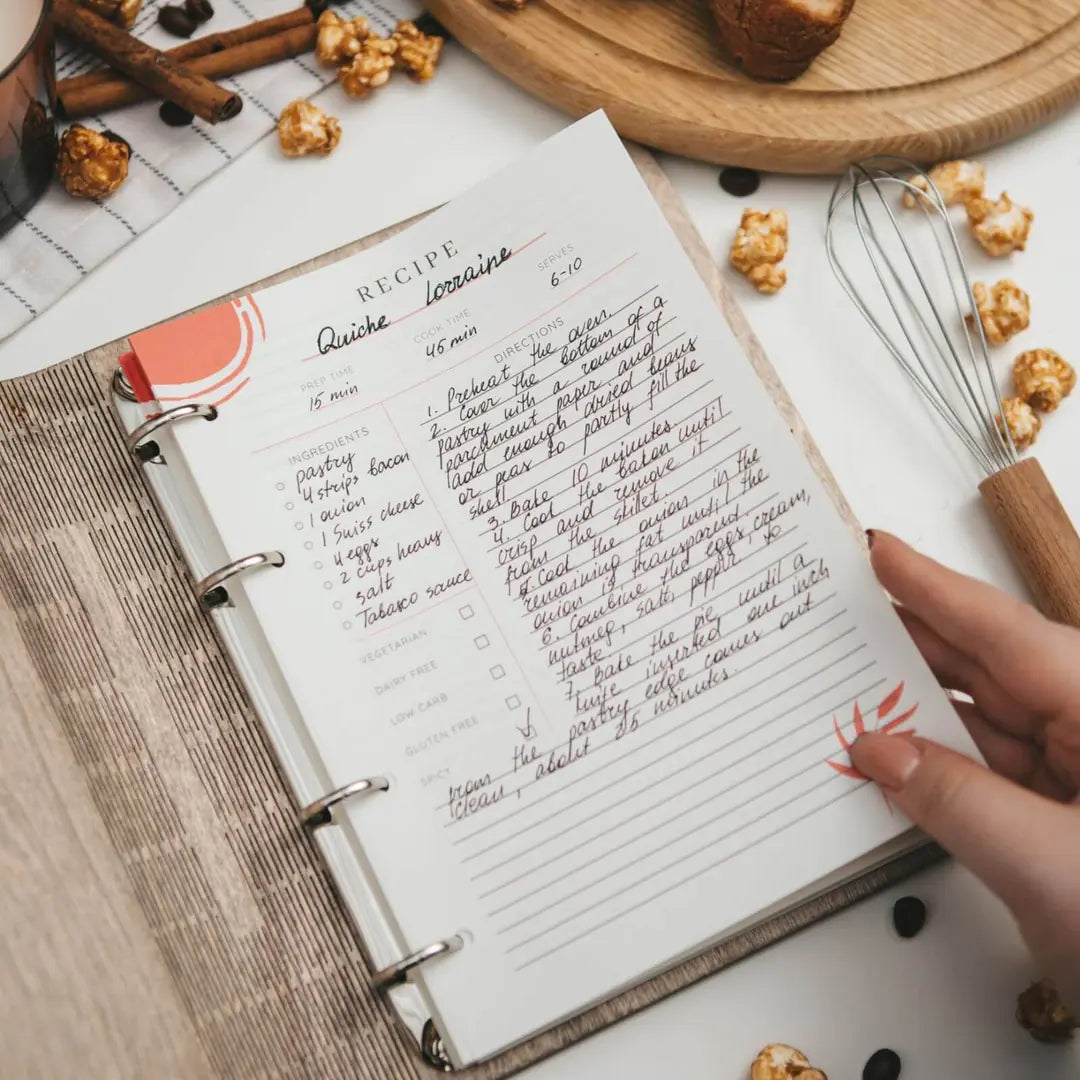 RECIPE
Quiche Lorraine
SERVES
6-10
COOK TIME
45 min
PREP TIME
15 min
INGREDIENTS
pastry
4 strips bacon
1 onion
1 Swiss cheese
4 eggs
2 cups heavy
salt
Tabasco sauce
VEGETARIAN
DAIRY FREE
LOW CARB
GLUTEN FREE
SPICY
DIRECTIONS
1. Preheat the oven.
2. Cover the bottom of a
pastry with a round of
parchment paper and
add enough dried beans
or peas to partly fill the
shell
3. Bake 10 minutes.
4. Cook the bakon until
crisp and remove it
from the skillet.
5. Cook the onion in the
remaining fat until the
onion is transparent.
6. Combine the eggs, cream,
nutmeg, salt, pepper to
taste.
7. Bake the pie until a
knife inserted one inch
from the pastry edge comes out
clean, about 25 minutes.